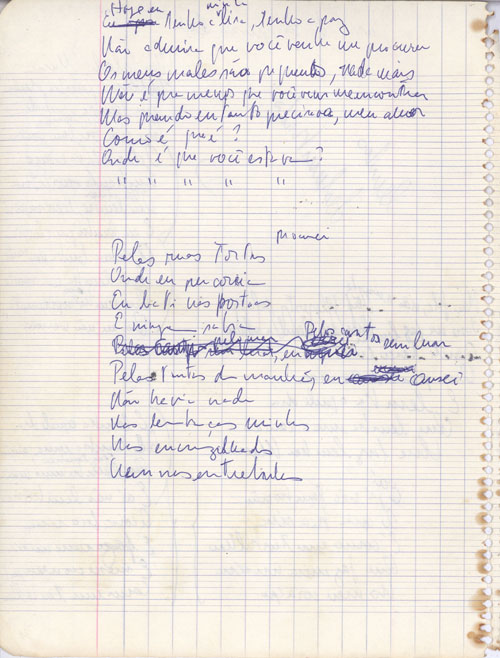 Hoje eu minha
Tenho a lira, tenho a paz
Não admira que você venha me procurar
Os meus males são pequenos, nada mais
Não é pra menos que você vem me encontrar
Mas quando eu tanto precisava, meu amor
Como é que é?
Onde é que você estava?
" " " " "
procurei
Pelas ruas Tortas
Onde eu percorria
Eu bati nas portas
E ninguém sabia
Pelos cantos sem luar
Pelas tintas da manhã, eu cansei
Não havia nada
Nas lembranças minhas
Nas encruzilhadas
Nem nas entrelinhas